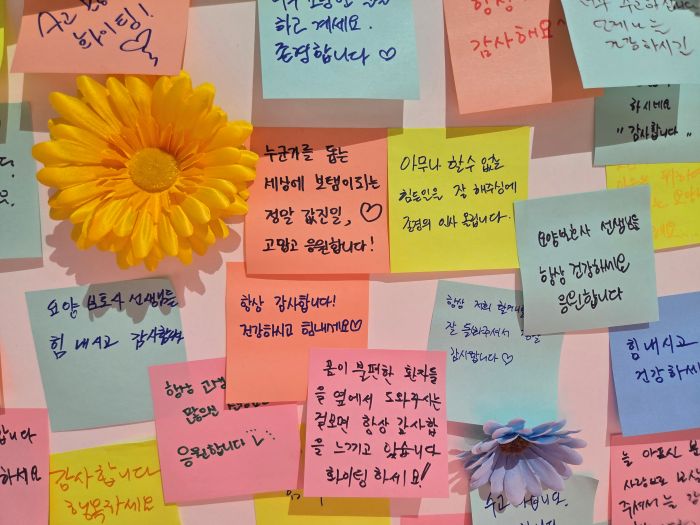 화이팅!
하고 계세요.
존경합니다 ♡
항상
감사해요
언제나
건강하시길
하시네요
"감사합니다"
누군가를 돕는
세상에 보탬이되는
정말 값진일, ♡
고맙고 응원합니다!
아무나 할 수 없는
힘든일을 잘 해주심에
존경의 인사 올립니다.
요양보호사 선생님들
항상 건강하세요
응원합니다
요양 보호사 선생님들
힘 내시고 감사합니다
항상 감사합니다!
건강하시고 힘내세요♡
항상 저희
잘 돌봐주셔서
감사합니다♡
힘 내시고
건강하세
항상
많은
응원합니다
몸이 불편한 환자들
을 옆에서 도와주시는
걸보면 항상 감사함
을 느끼고 있습니다
화이팅 하세요!
감사합니다
행복하세요
니다
세요
늘
주셔서
수고 하십니다.